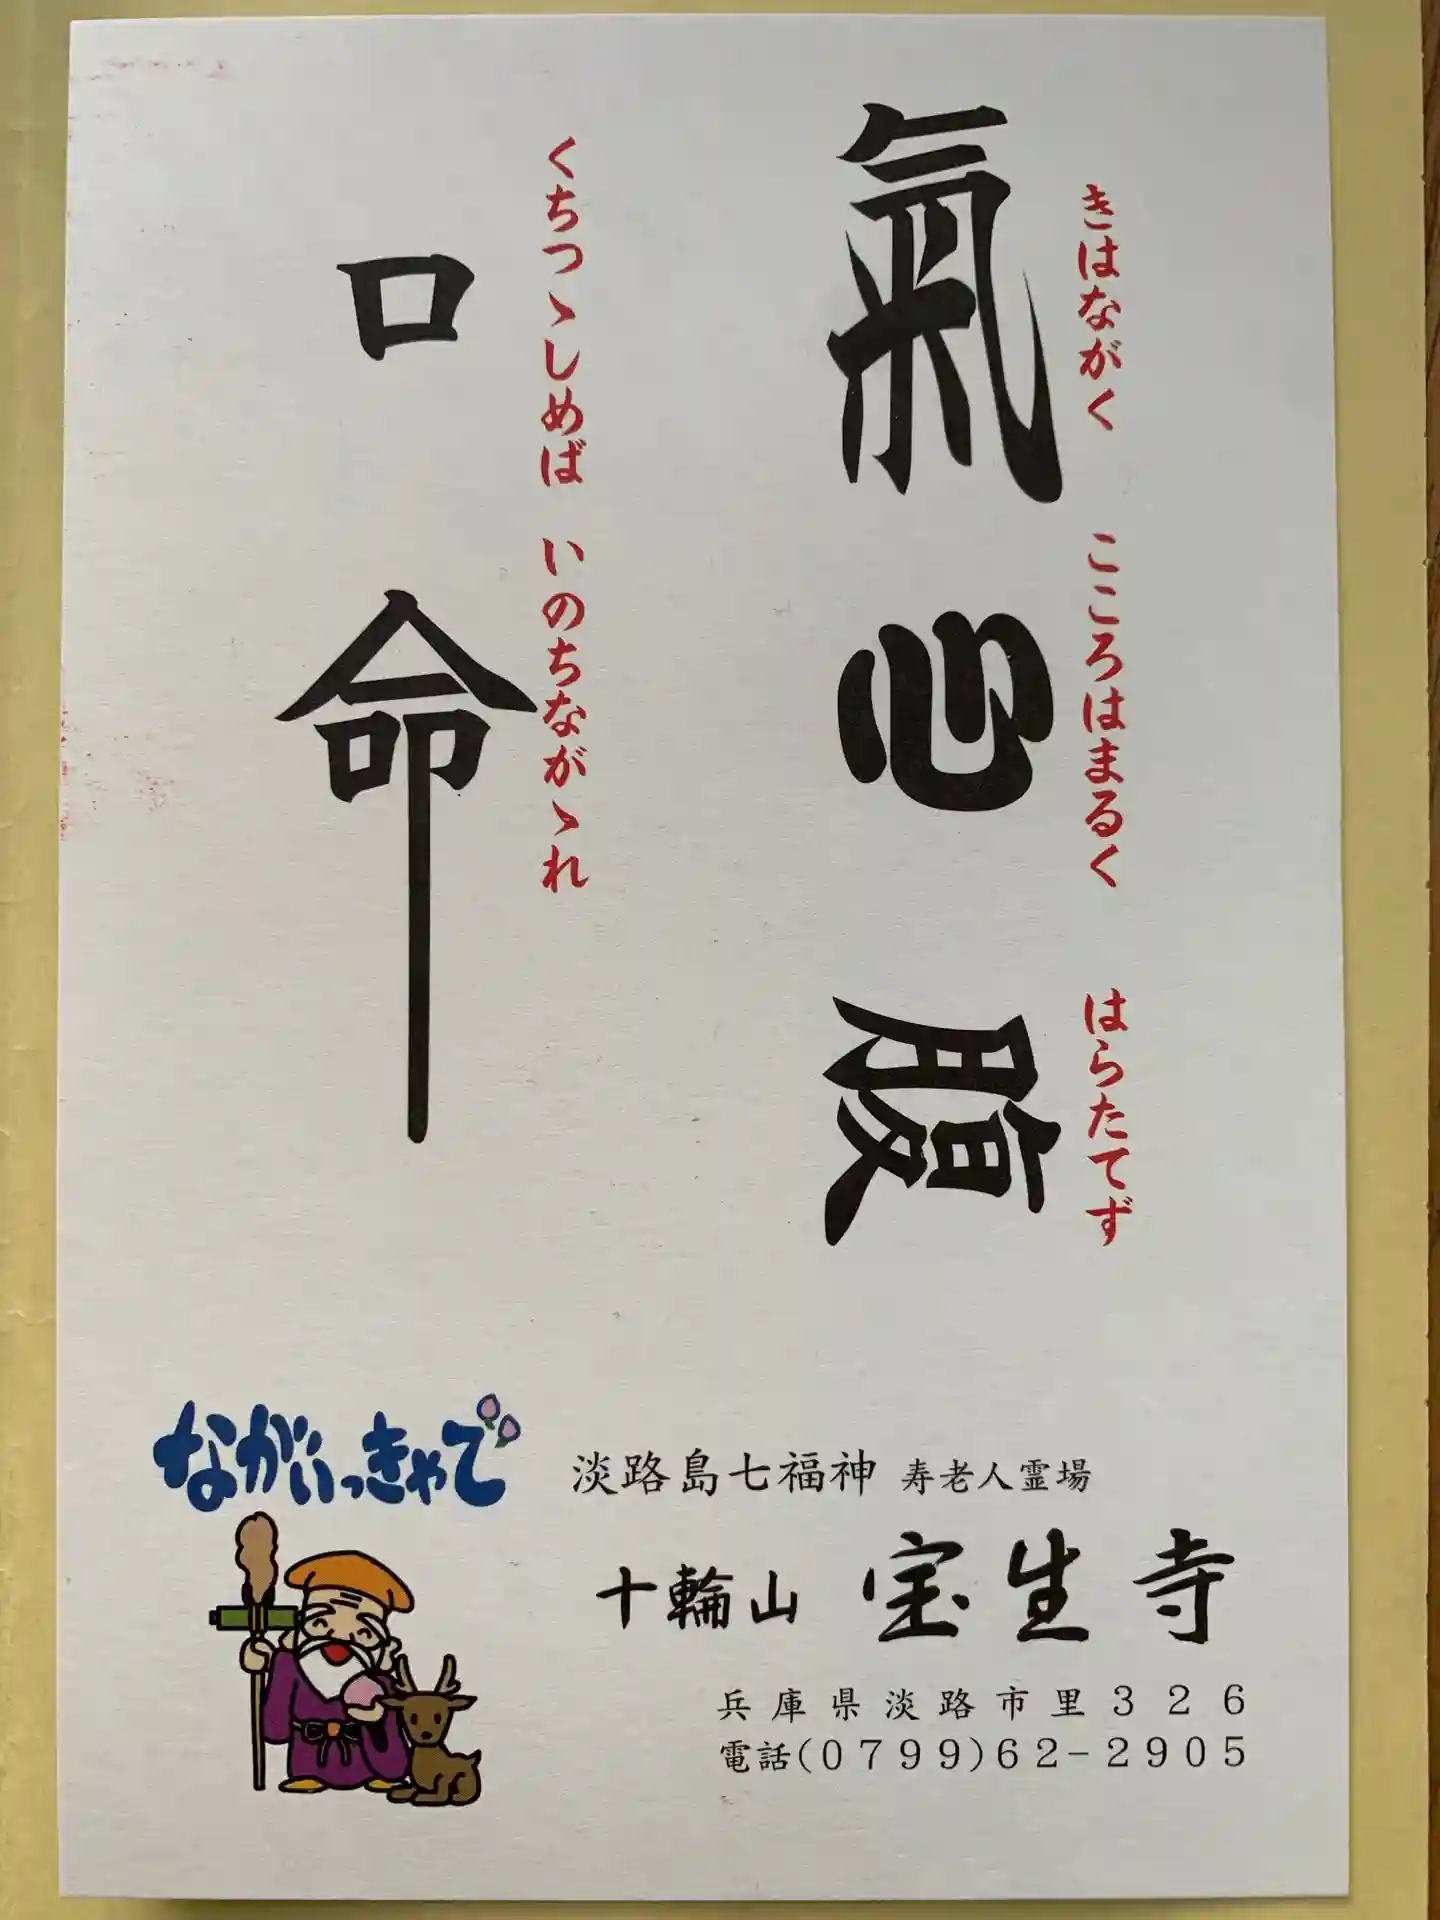 きはながく　こころはまるく　はらたてず
氣心腹
くちつゝしめば　いのちながゝれ
口命
ながいっきゃで
淡路島七福神 寿老人霊場
十輪山 宝生寺
兵庫県淡路市里３２６
電話(０７９９)６２−２９０５